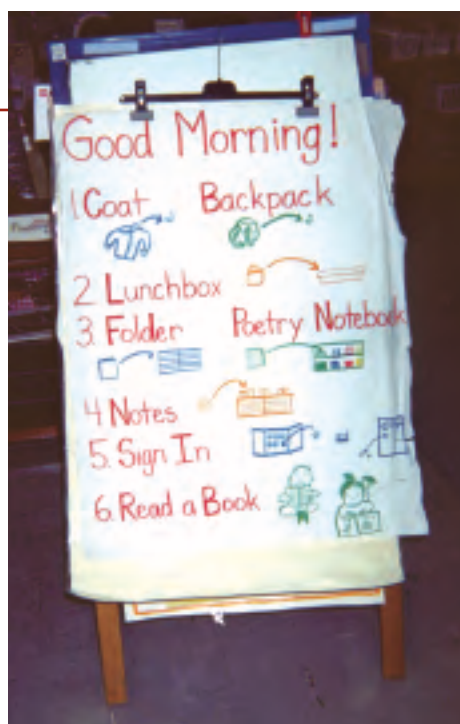 Good Morning!
1. Coat Backpack
2. Lunchbox
3. Folder Poetry Notebook
4 Notes
5. Sign In
6. Read a Book